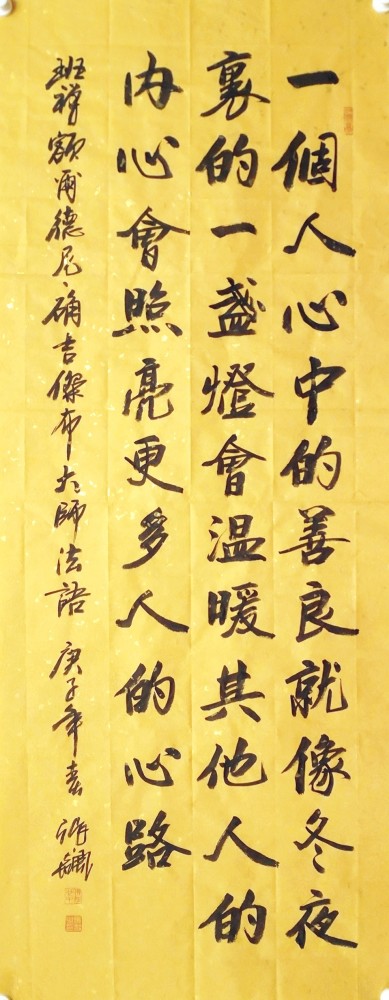 一個人心中的善良就像冬夜
裏的一盞燈會温暖其他人的
内心會照亮更多人的心路
班禪額爾德尼·确吉傑布大師法語 庚子年春